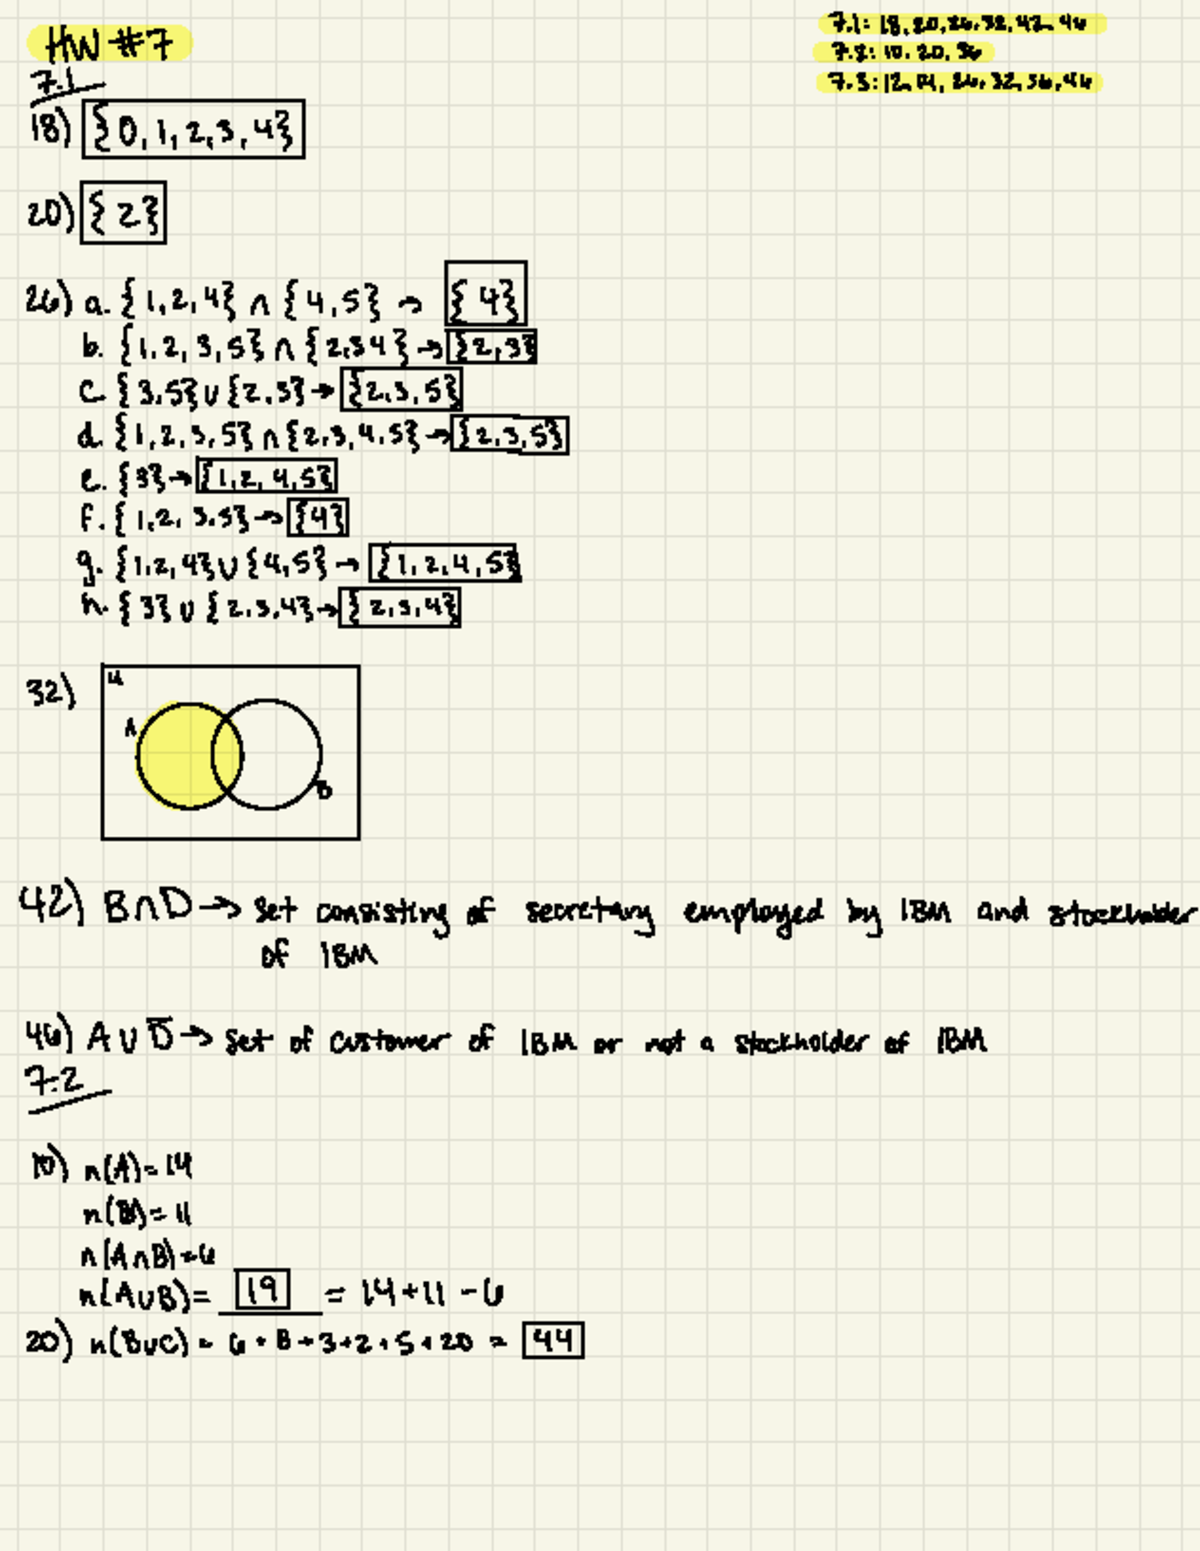 HW #7
7.1: 18, 20, 26, 32, 42, 46
7.2: 10, 20, 36
7.3: 12, 14, 26, 32, 36, 46
7.1
18) {0, 1, 2, 3, 4}
20) {2}
26) a. {1, 2, 4} ∩ {4, 5} → {4}
b. {1, 2, 3, 5} ∩ {2, 3 4} → {2, 3}
c. {3, 5} ∪ {2, 3} → {2, 3, 5}
d. {1, 2, 3, 5} ∩ {2, 3, 4, 5} → {2, 3, 5}
e. {3} → {1, 2, 4, 5}
f. {1, 2, 3, 5} → {4}
g. {1, 2, 4} ∪ {4, 5} → {1, 2, 4, 5}
h. {3} ∪ {2, 3, 4} → {2, 3, 4}
32) U
A
B
42) B∩D → set consisting of secretary employed by IBM and stockholder
of IBM
46) A ∪ D̅ → set of customer of IBM or not a stockholder of IBM
7.2
10) n(A) = 14
n(B) = 11
n(A∩B) = 6
n(A∪B) = 19 = 14 + 11 - 6
20) n(B∪C) = 6 + 8 + 3 + 2 + 5 + 20 = 44